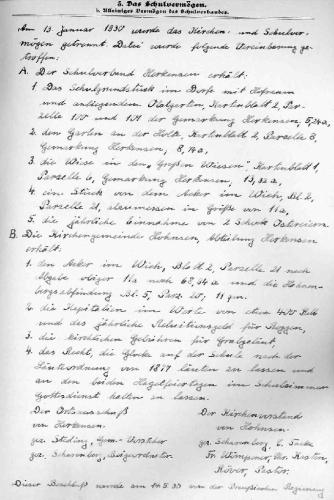 5. Das Schulvermögen.
b. Alleiniges Vermögen des Schulverbandes.
Am 13. Januar 1930 wurde das Kirchen- und Schulver-
mögen getrennt. Dabei wurde folgende Vereinbarung ge-
troffen:
A. Der Schulverband Herkensen erhält:
1. Das Schulgrundstück im Dorfe mit Hofraum
und anliegendem Obstgarten, Kartenblatt 2, Par-
zelle 100 und 101 der Gemarkung Herkensen,
2. den Garten an der Kartenblatt 2, Parzelle 8,
Gemarkung Herkensen, 8, a,
3. die Wiese in den "Großen Wiesen" Kartenblatt 1,
Parzelle 6, Gemarkung Herkensen, 13, a,
4. ein Stück von dem Acker im Wieh, Bl. 2,
Parzelle 21, abzumessen in Größe von 11a,
5. die jährliche Einnahme von 2 Schock Ostereiern.
B. Die Kirchengemeinde Hohnsen, Abteilung Herkensen
erhält:
1. den Acker im Wieh, Blatt 2, Parzelle 21 nach
Abgabe obiger 11a noch a und die
Bl. 5, Parz.
2. die Kapitalien im Werte von etwa 400 RM
und das jährliche
3. die kirchlichen Gebühren für Grabgeläut,
4. das Recht, die Glocke auf der Schule nach der
Läutordnung von 1877 läuten zu lassen und
an den beiden Hagelfeiertagen im Schulzimmer
Gottesdienst halten zu lassen.
Der Ortsausschuß
von Herkensen.
gez. Gem.-Vorsteher
gez. Scharnberg,
Der Kirchenvorstand
von Hohnsen.
gez. Scharnberg,
Fr.
Pastor.
Dieser Beschluß wurde am 14.5.30 von der Preußischen Regierung